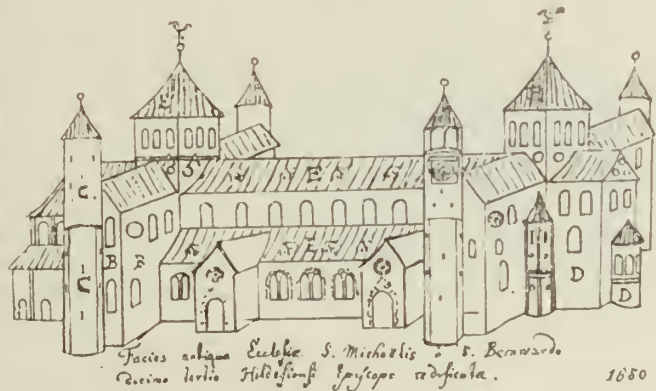 Facies antiqua Ecclesiæ S. Michaelis a S. Bernwardo
decimo tertio Hildesiensi Epyscopo ædificata.
1650
C
C
B
B
D
D